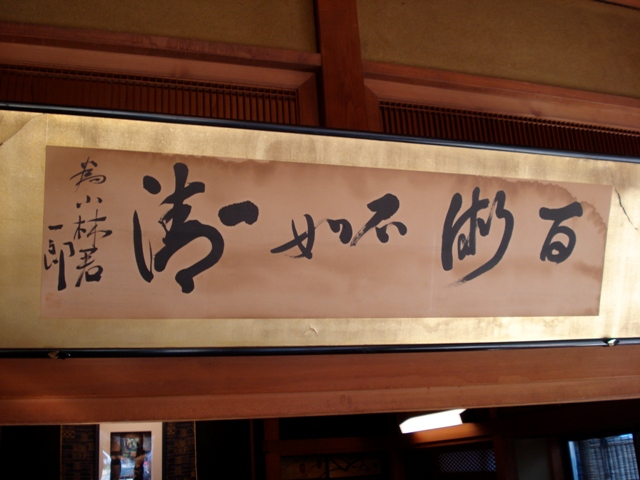 百術不如一清
為小林君
一郎